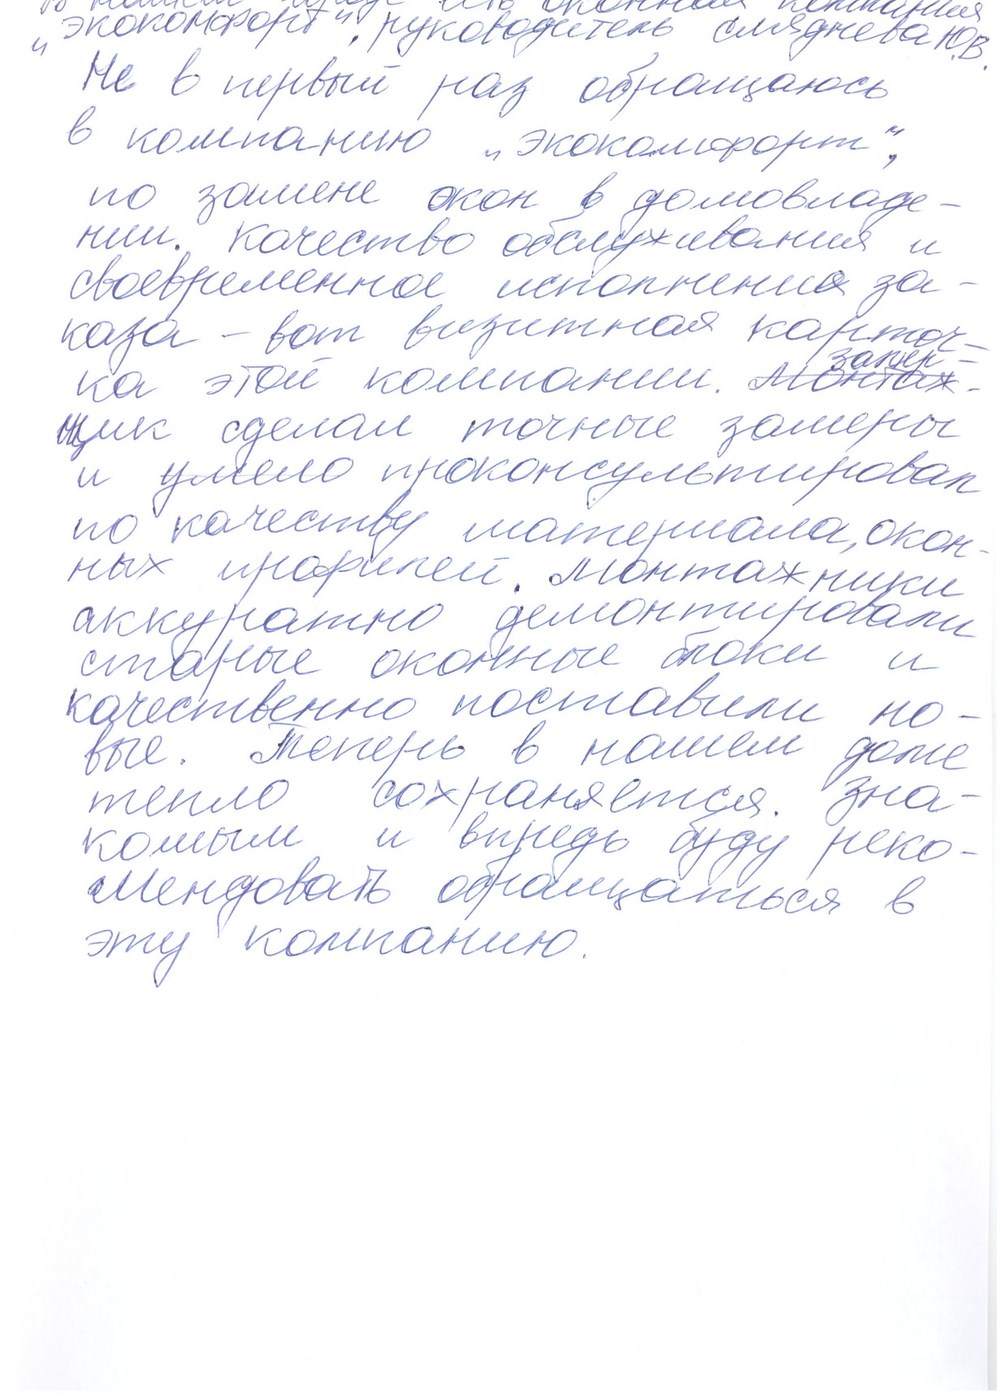 В нашем городе есть оконная компания
"Экокомфорт", руководитель Смяднева Ю.В.
Не в первый раз обращаюсь
в компанию "Экокомфорт",
по замене окон в домовладе-
нии. Качество обслуживания и
своевременное исполнения за-
каза – вот визитная карточ-
ка этой компании. Монтаж- замер-
щик сделал точные замеры
и умело проконсультировал
по качеству материала, окон-
ных профилей. Монтажники
аккуратно демонтировали
старые оконные блоки и
качественно поставили но-
вые. Теперь в нашем доме
тепло сохраняется. Зна-
комым и впредь буду реко-
мендовать обращаться в
эту компанию.